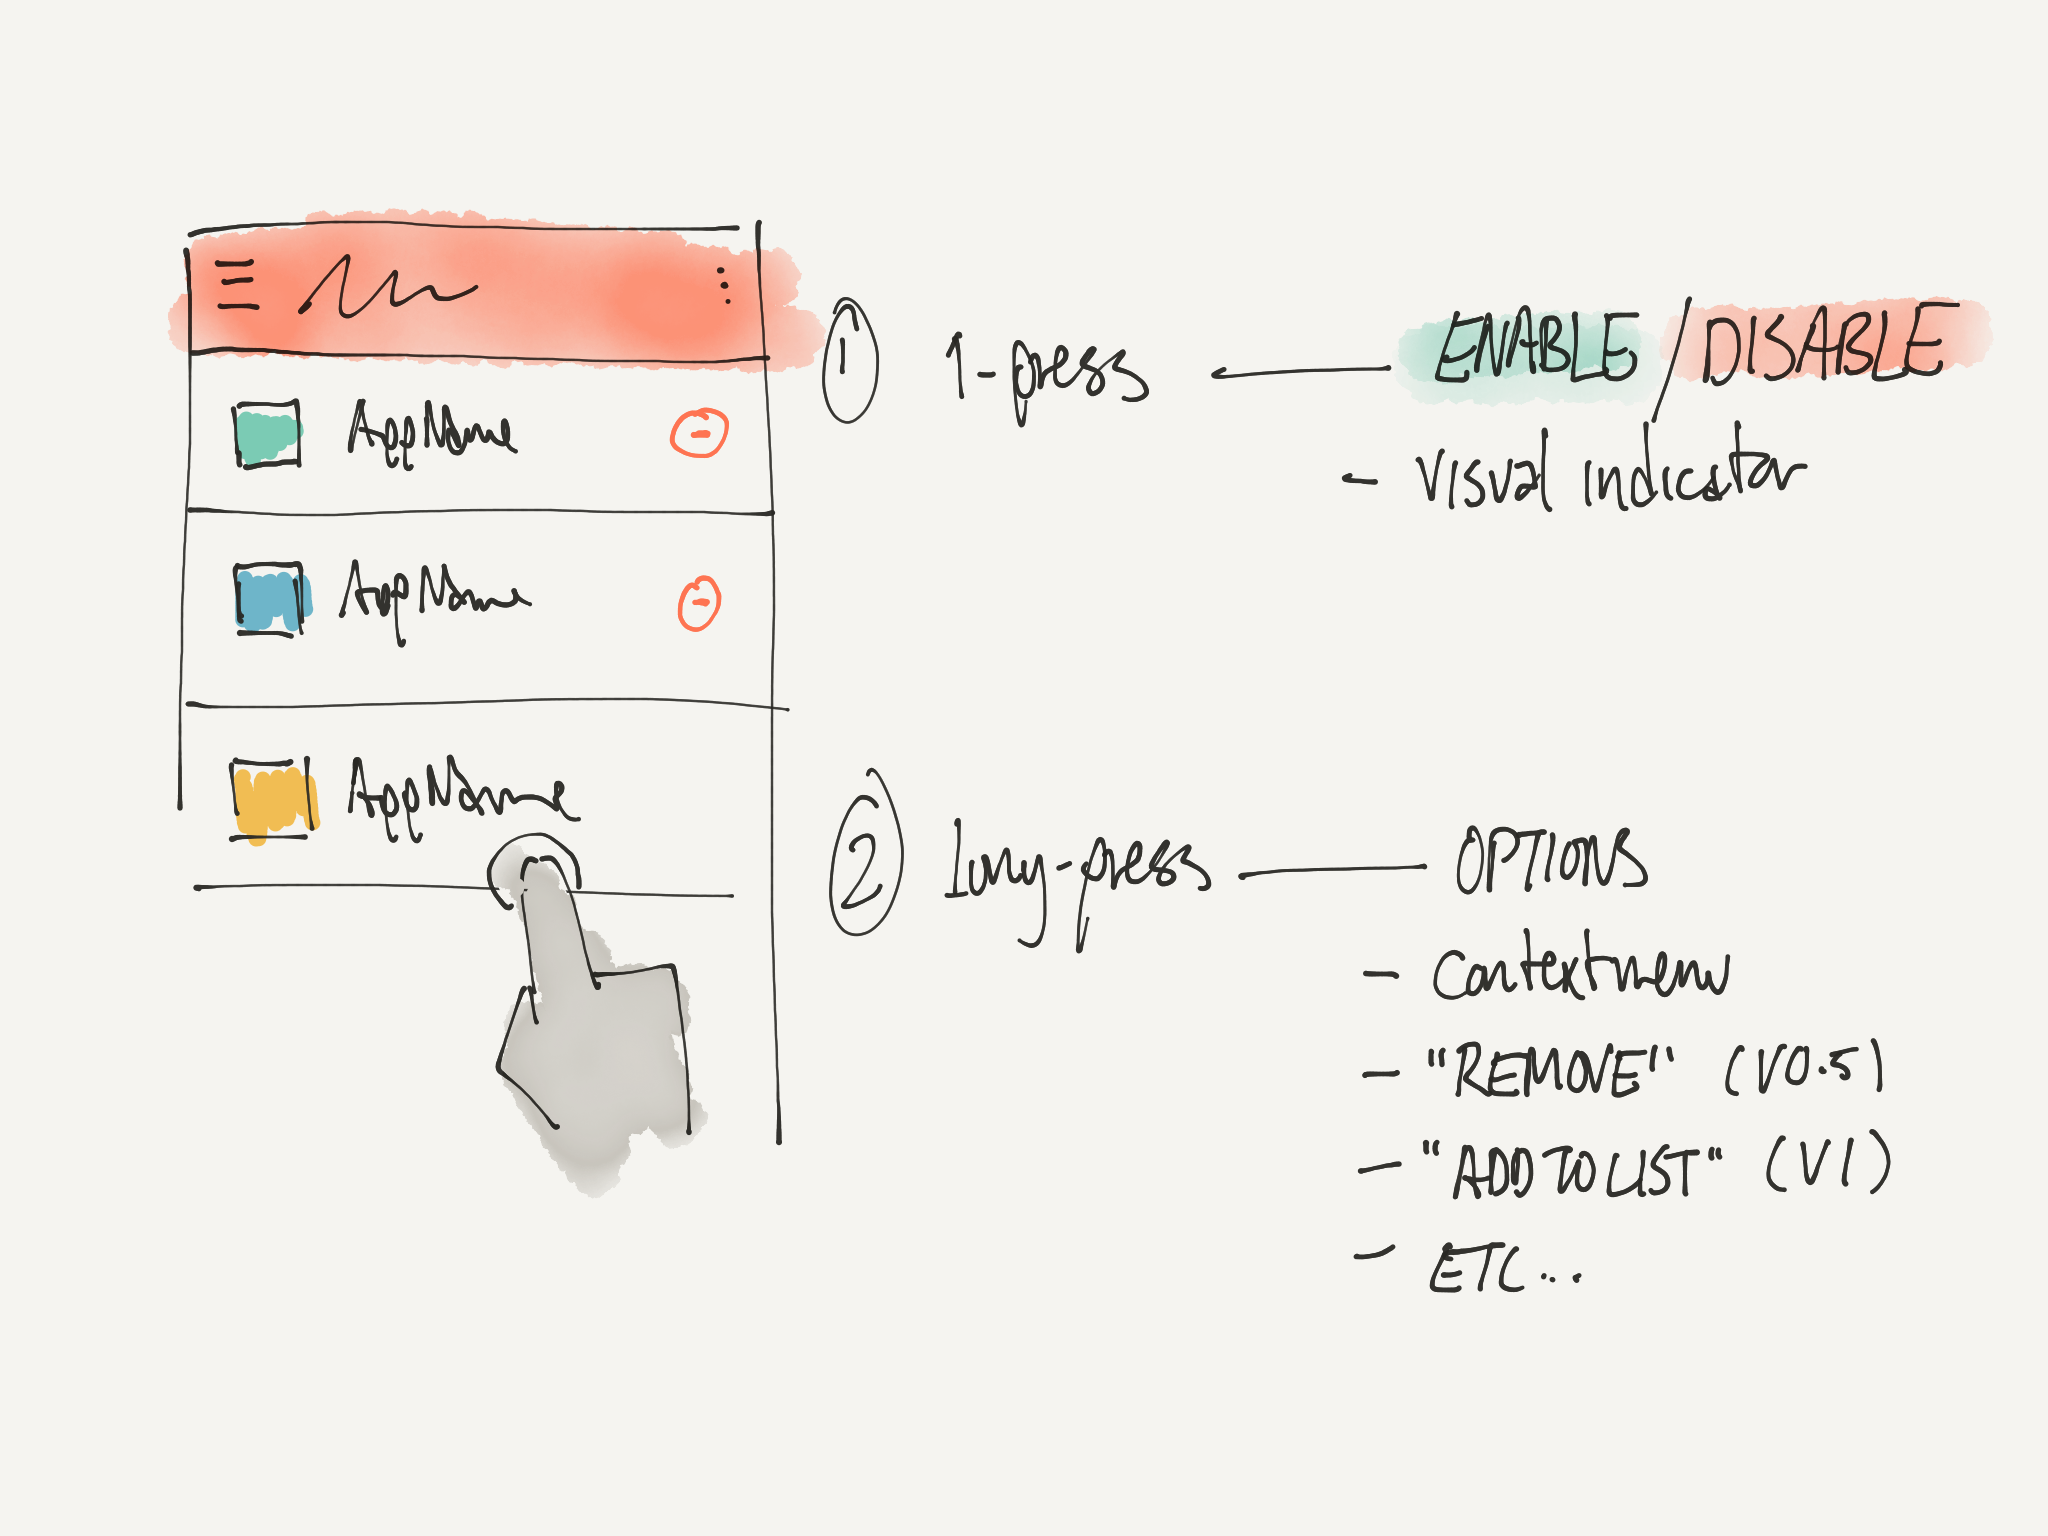 AppName
AppName
AppName
1 1-press ENABLE / DISABLE
- Visual indicator
2 long-press OPTIONS
- Contextmenu
- "REMOVE" (V0.5)
- "ADD TO LIST" (V1)
- ETC...